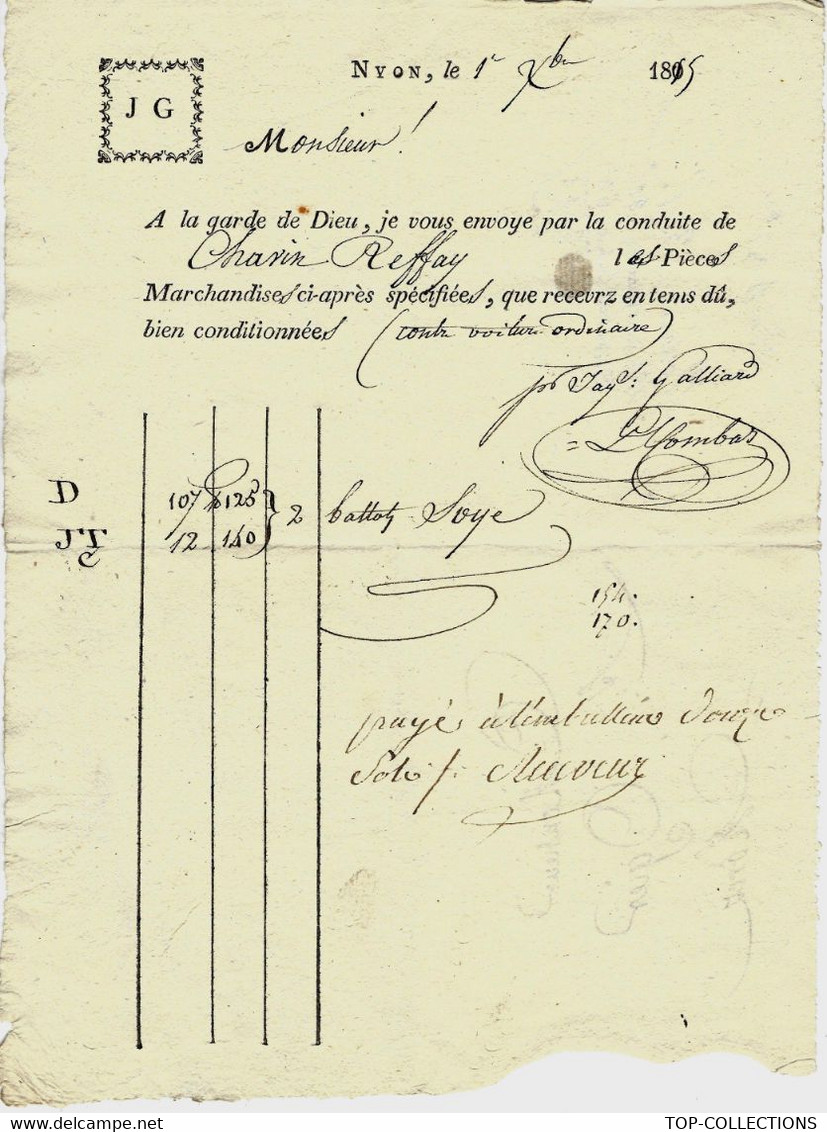 NYON, le 1r Xbre 1815
J G
Monsieur!
A la garde de Dieu, je vous envoye par la conduite de
Chavin Reffay les Pièces
Marchandises ci-après spécifiées, que recevrz en tems dû,
bien conditionnées (contre voiture ordinaire)
pr Jaqs: Galliard
= Ls Combaz
D 107 128 } 2 ballots Soye
JT 12 140
G
154.
170.
payé à l'emballeur douze
Sols